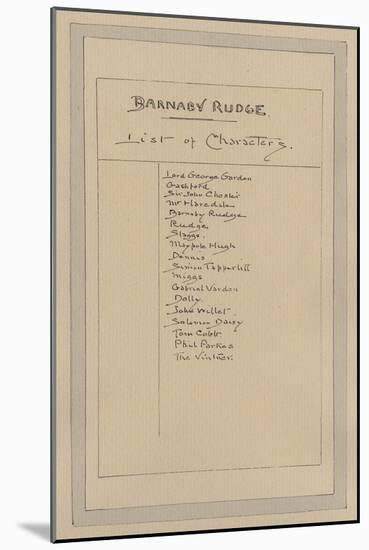 BARNABY RUDGE.
List of Characters.
Lord George Gordon
Gashford
Sir John Chester
Mr Haredale
Barnaby Rudge
Rudge
Stagg
Maypole Hugh
Dennis
Simon Tappertit
Miggs
Gabriel Vardon
Dolly
John Willet
Solomon Daisy
Tom Cobb
Phil Parkes
The Vintner.